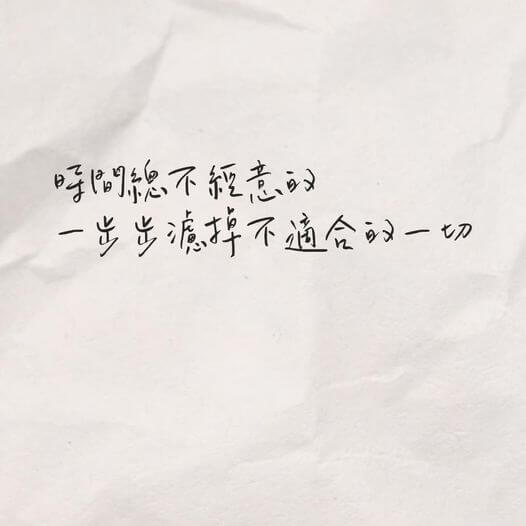 時間總不經意的
一步步濾掉不適合的一切